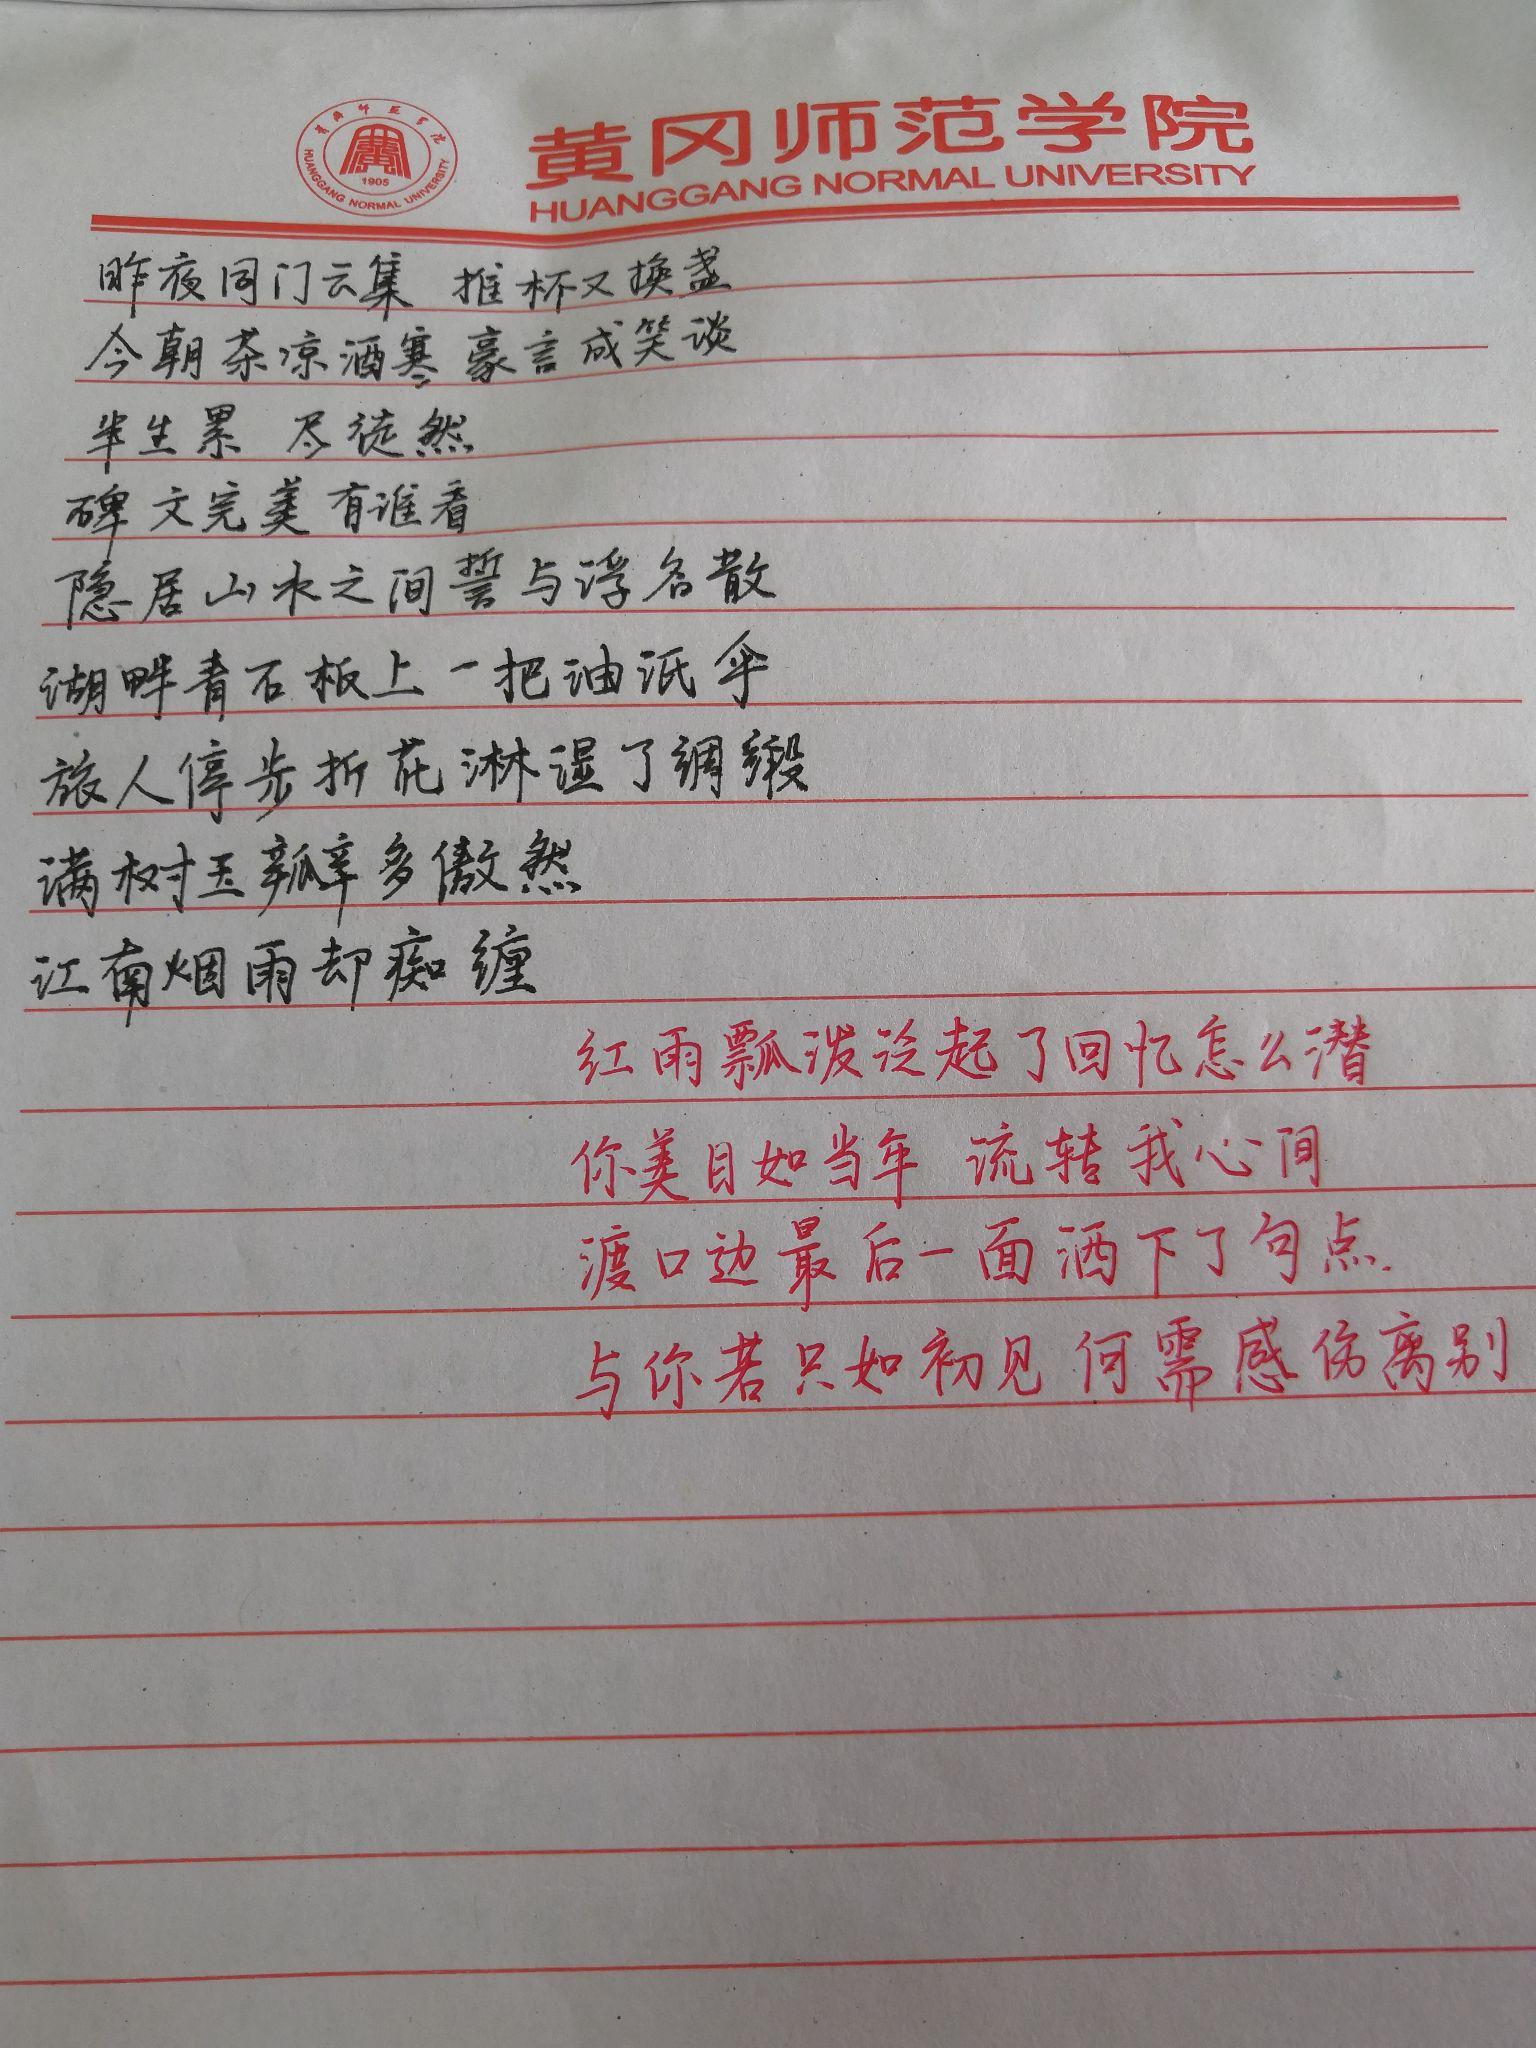 黄冈师范学院
HUANGGANG NORMAL UNIVERSITY
黄冈师范学院
HUANGGANG NORMAL UNIVERSITY
1905
昨夜同门云集 推杯又换盏
今朝茶凉酒寒 豪言成笑谈
半生累 尽徒然
碑文完美有谁看
隐居山水之间誓与浮名散
湖畔青石板上一把油泜伞
旅人停步折花淋湿了绸缎
满树玉瓣多傲然
江南烟雨却痴缠
红雨瓢泼泛起了回忆怎么潜
你美目如当年 流转我心间
渡口边最后一面洒下了句点
与你若只如初见 何需感伤离别